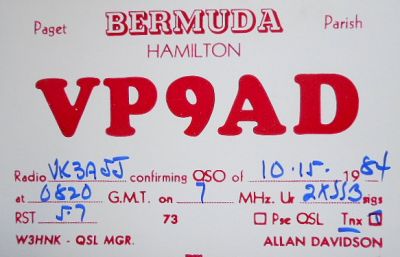 Paget BERMUDA Parish
HAMILTON
VP9AD
Radio VK3AJJ confirming QSO of 10.15. 1984
at 0820 G.M.T. on 7 MHz. Ur 2XSSB sigs
RST 5.7 73 Pse QSL Tnx
W3HNK - QSL MGR. ALLAN DAVIDSON